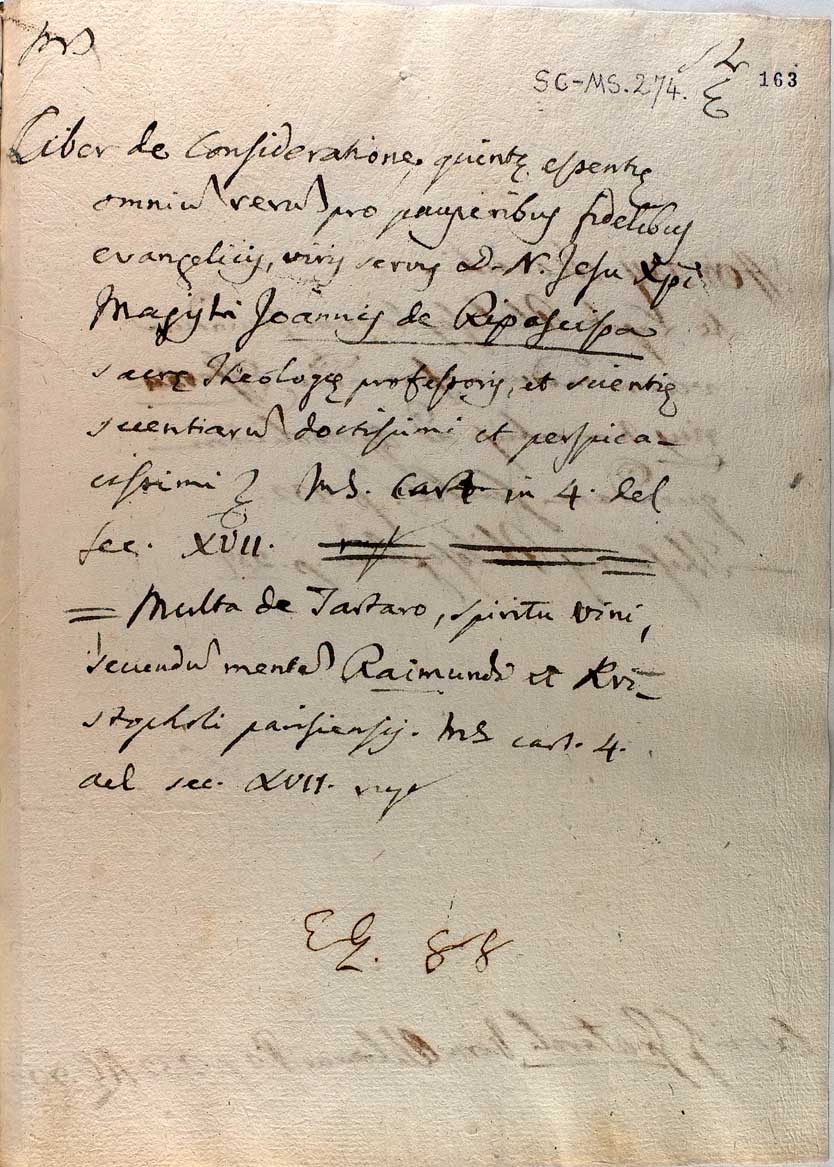 MS
SC-MS.274.
163
Liber de Consideratione quintę essentię
omniū rerū pro pauperibus fidelibus
evangelicis, viris servis D. N. Jesu Xpi
Magistri Joannis de Ripascissa
sacrę Theologię professoris, et scientię
scientiarū doctissimi et perspica-
cissimi MS. Cart in 4. del
sec. XVII.
= Multa de Tartaro, spiritu vini,
secundū mentē Raimundi et Kri-
stopholi parisiensis. MS cart. 4.
del sec. XVII.
E G. 88